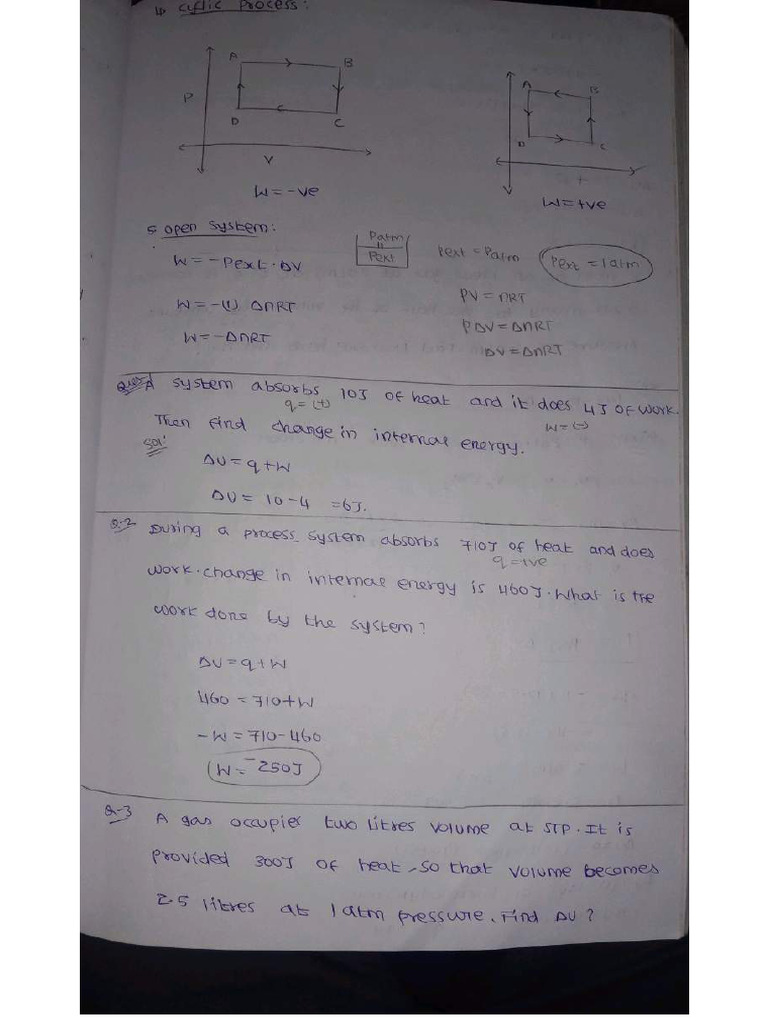 4) Cyclic process:
A B
P
D C
V
W = -ve
A B
D C
W = +ve
5 open system:
Patm
Pext
Pext = Patm
Pext = 1 atm
W = -Pext. ΔV
PV = nRT
W = -(1) ΔnRT
PΔV = ΔnRT
W = -ΔnRT
ΔV = ΔnRT
Ques-1 A system absorbs 10J of heat and it does 4J of work.
q = (+)
W = (-)
Then find change in internal energy.
Sol:
ΔU = q + W
ΔU = 10 - 4 = 6J.
Q-2 During a process system absorbs 710J of heat and does
q = +ve
work. change in internal energy is 460J. What is the
work done by the system?
ΔU = q + W
460 = 710 + W
-W = 710 - 460
W = -250J
Q-3 A gas occupies two litres volume at STP. It is
provided 300J of heat, so that volume becomes
2.5 litres at 1 atm pressure. Find ΔU ?